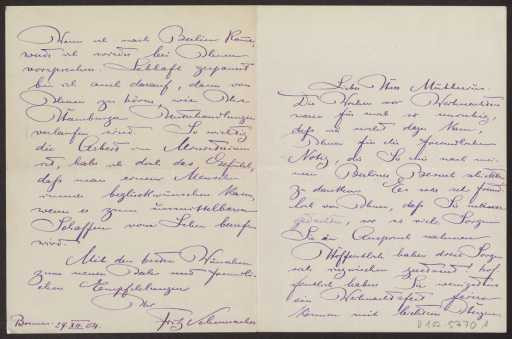 Lieber Herr Muthesius.
Die Wochen vor Weihnachten
waren für mich so unruhig,
daß ich nicht dazu kam,
Ihnen für die freundlichen
Notiz, die Sie mir nach mei-
nem Berliner Besuch schickten
zu danken. Es war sehr freund
lich von Ihnen, daß Sie meiner
gedachten, wo so viele Sorgen
Sie in Anspruch nahmen.
Hoffentlich haben diese Sorgen
sich inzwischen zerstreut, hof
fentlich haben Sie wenigstens
das Weihnachtsfest feiern
können mit leichterem Herzen.
D 102 5770 1
Wenn ich nach Berlin komme,
werde ich wieder bei Ihnen
vorsprechen. Lebhaft gespannt
bin ich auch darauf, dann von
Ihnen zu hören, wie Ihre
Hamburger Unterhandlungen
verlaufen sind. So wichtig
die Arbeit im Ministerium
ist, habe ich doch das Gefühl,
daß man einen Menschen
immer beglückwünschen kann,
wenn er zum unmittelbaren
Schaffen vom Leben berufen
wird.
Mit den besten Wünschen
zum neuen Jahr und freundli-
chen Empfehlungen
Ihr
Fritz Schumacher
Bremen. 29. XII. 04.